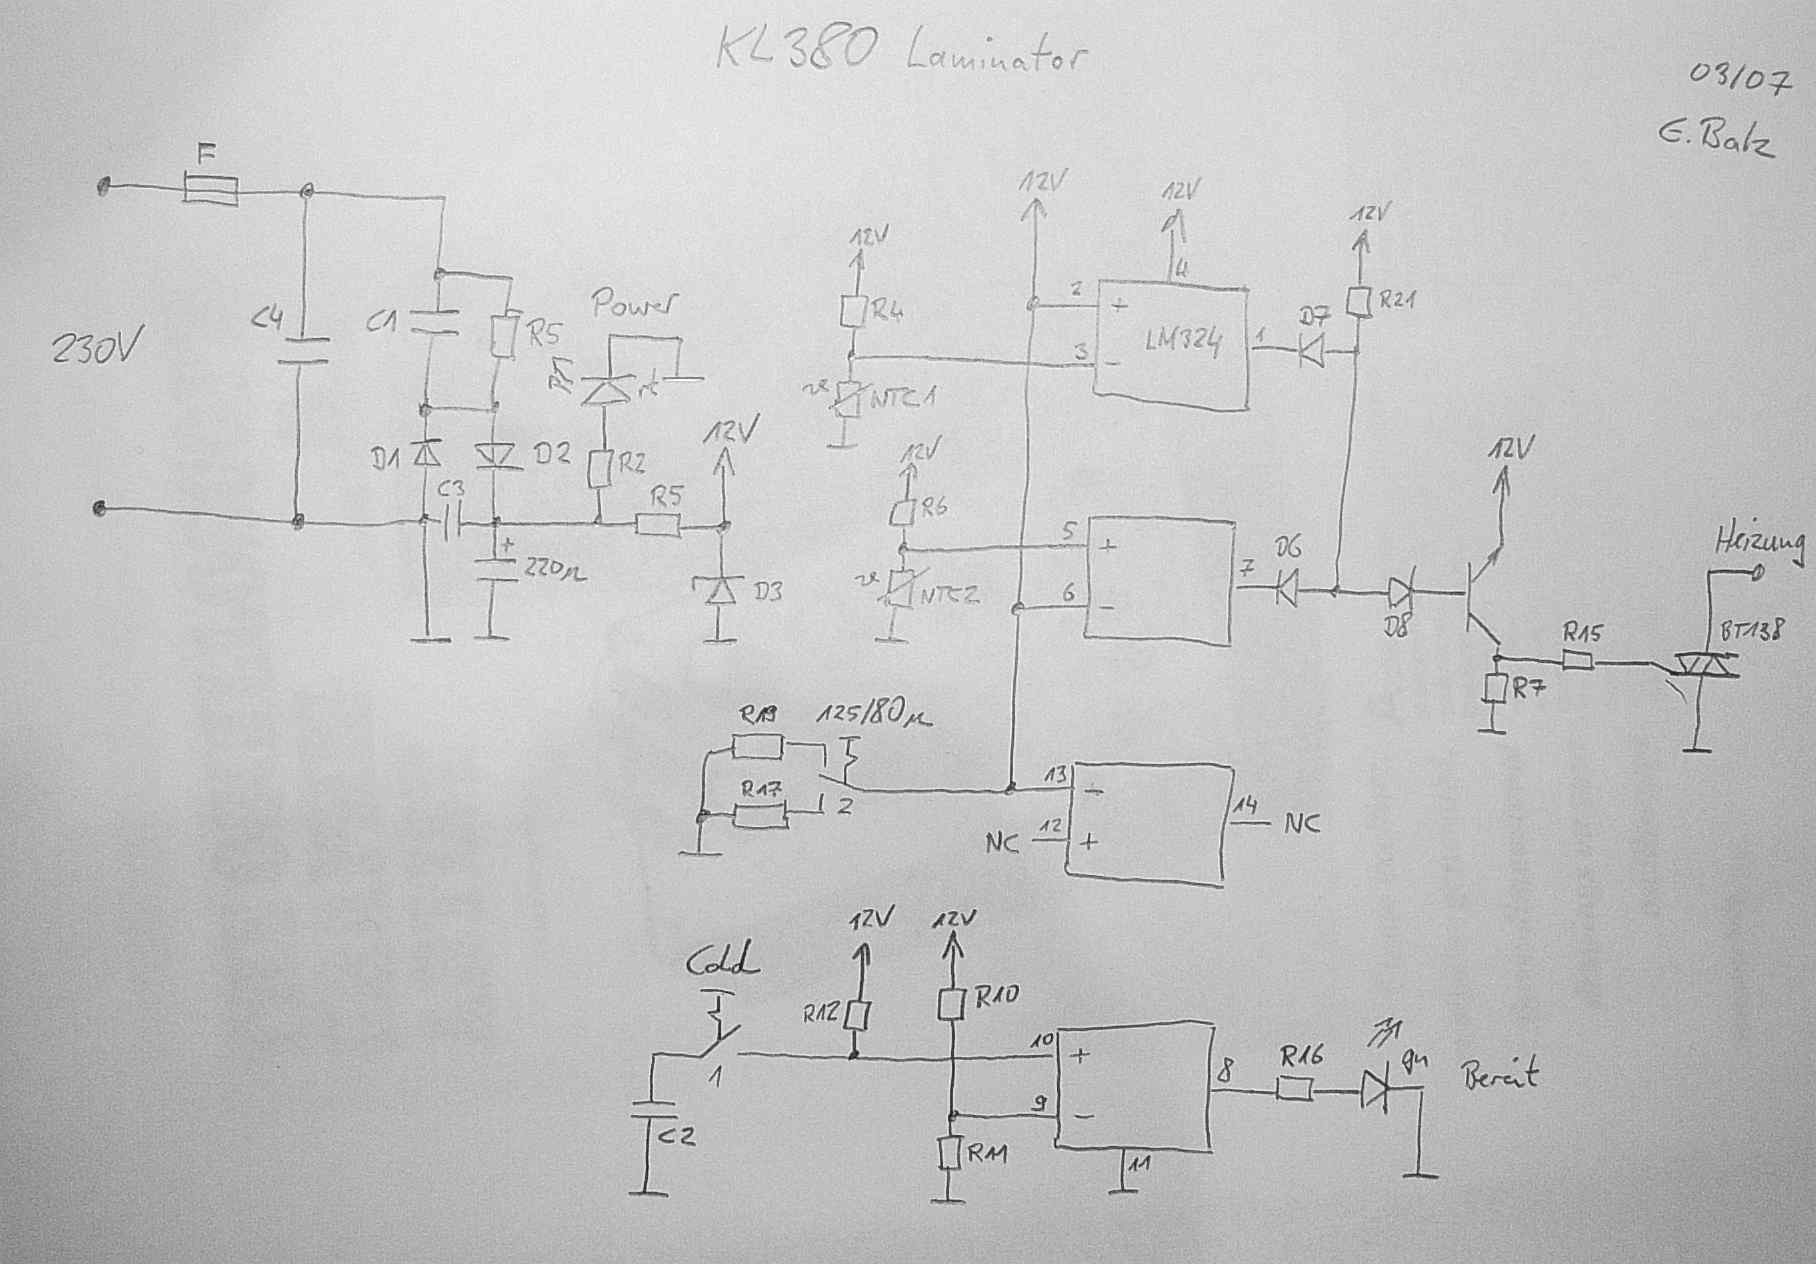 KL380 Laminator
03/07
E. Balz
F
230V
C4
C1
R5
Power
rt
D1
D2
R2
C3
R5
12V
+
220µ
D3
12V
R4
NTC1
12V
12V
2
+
4
LM324
3
-
1
D7
12V
R21
12V
R6
NTC2
5
+
6
-
7
D6
D8
12V
R15
R7
Heizung
BT138
R19
125/80µ
R17
2
13
-
NC
12
+
14
NC
Cold
1
C2
12V
R12
12V
R10
10
+
9
-
R11
11
8
R16
gn
Bereit